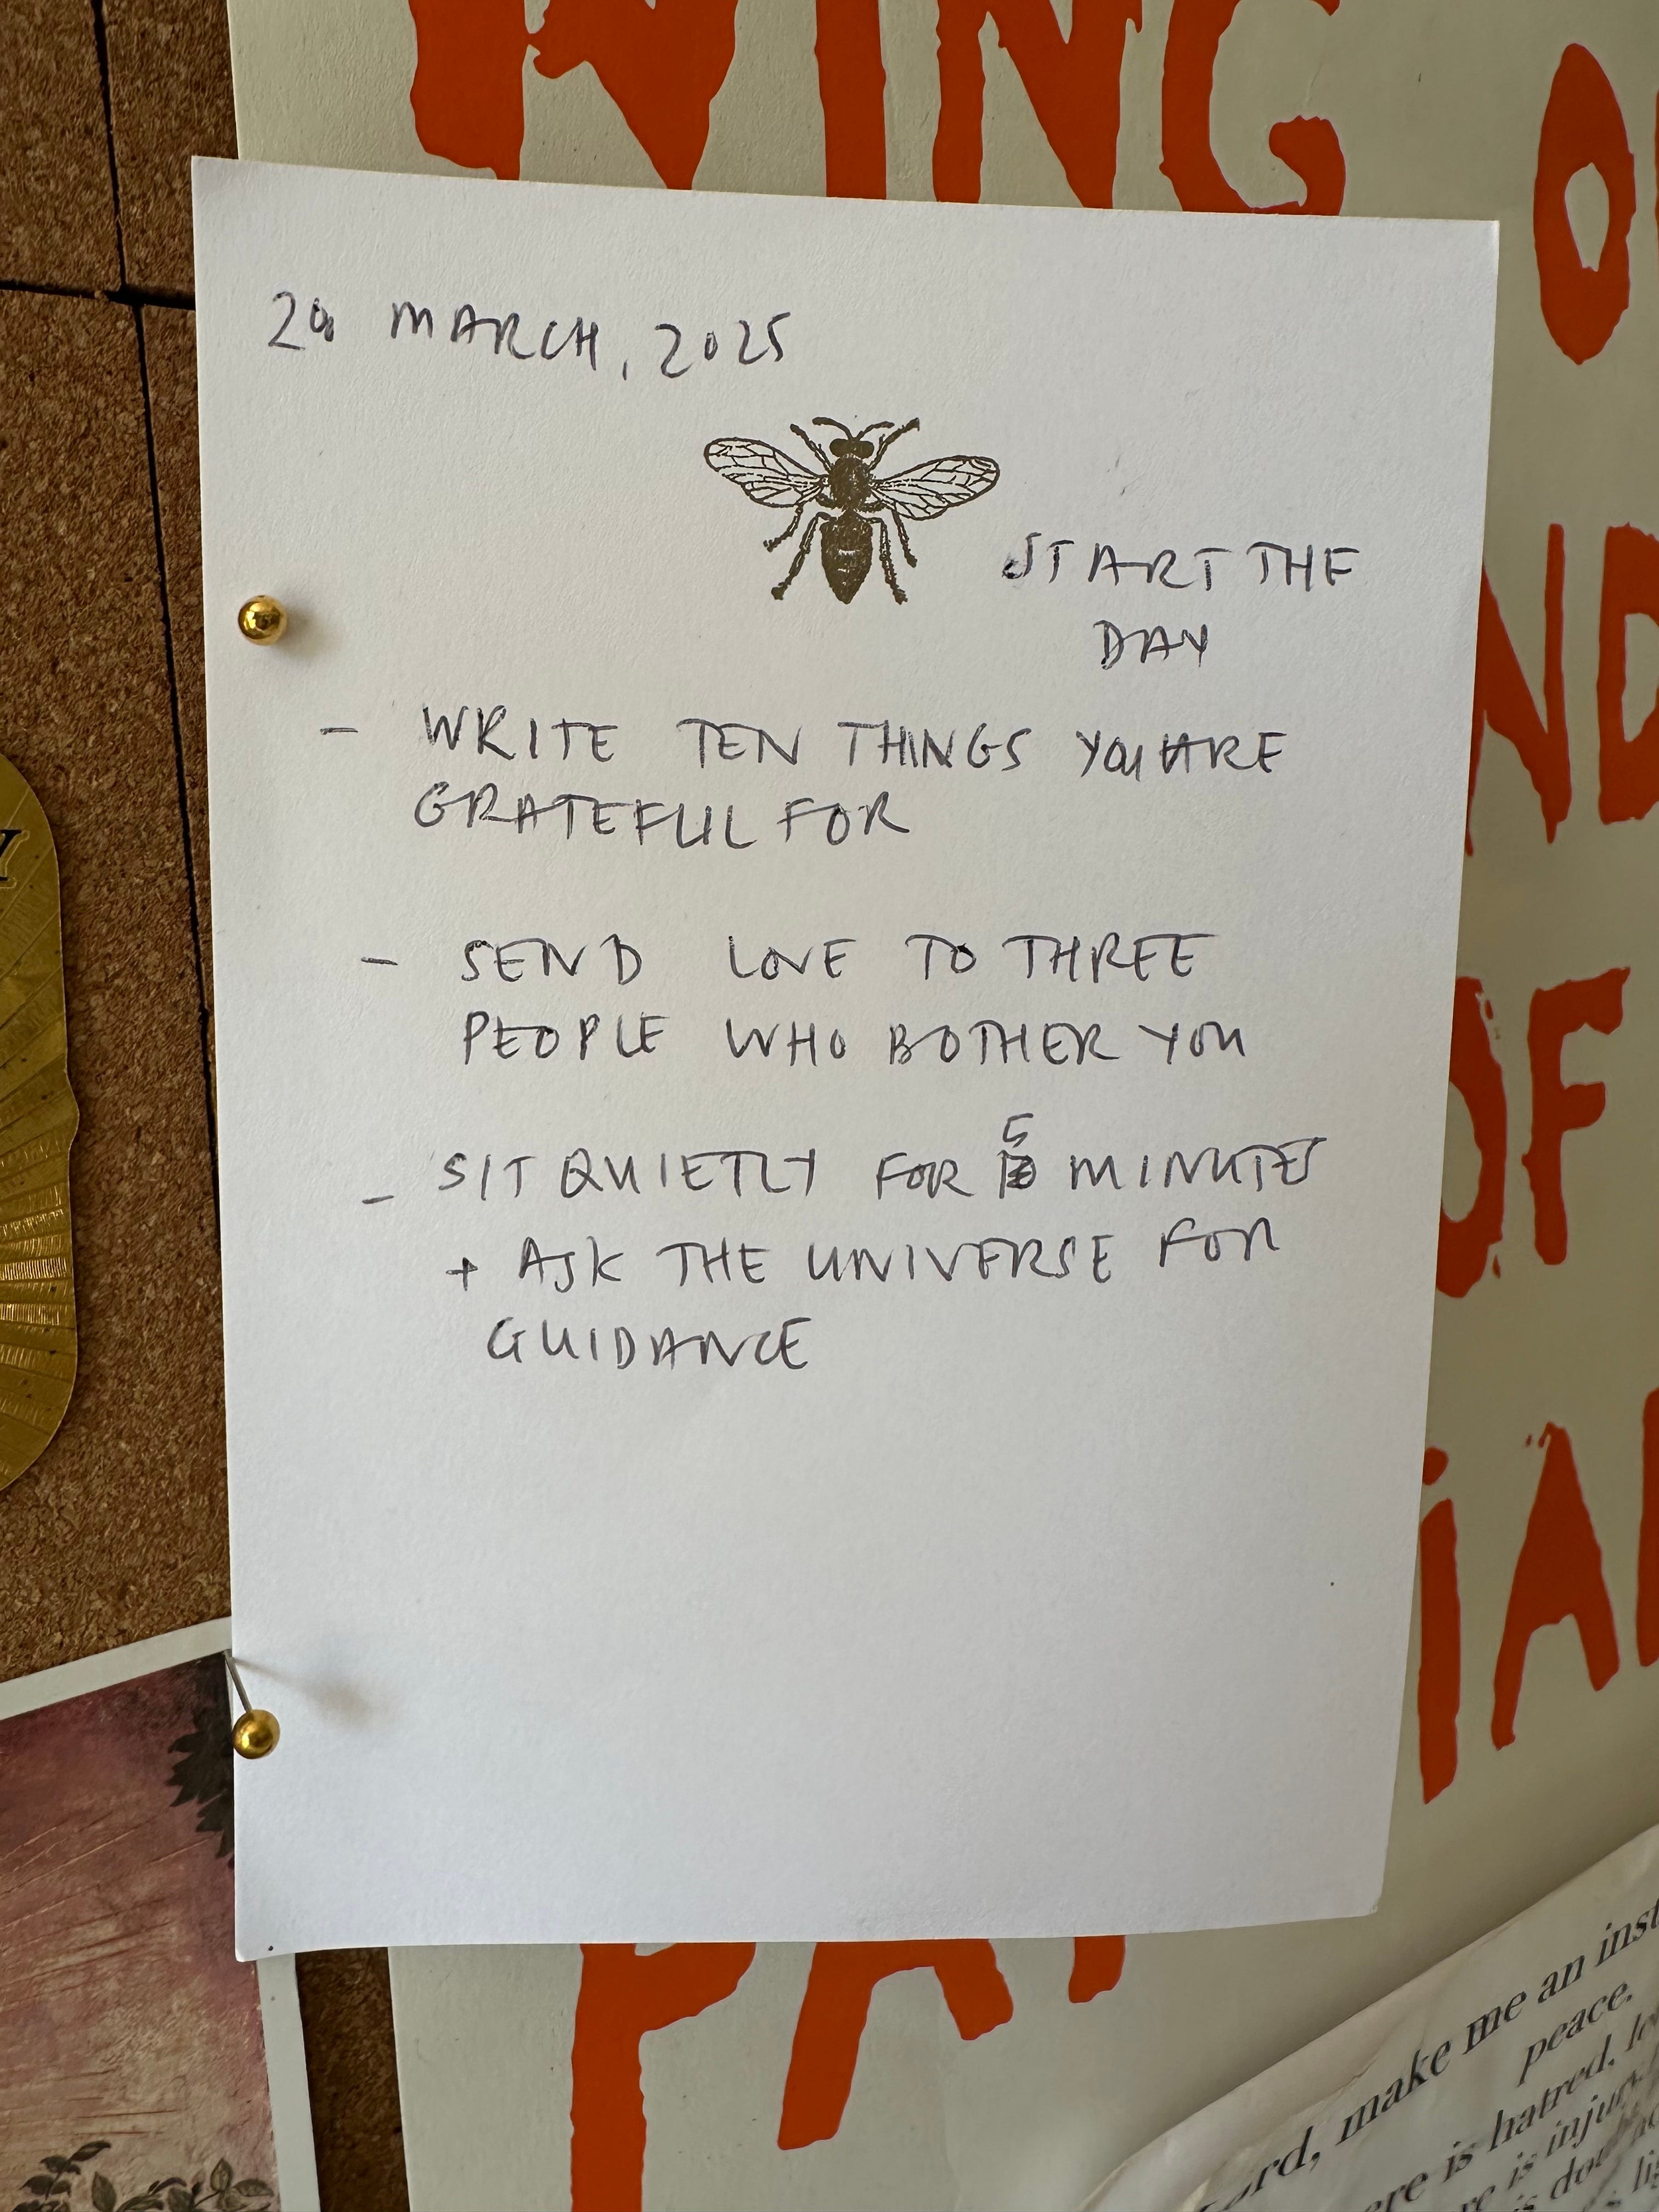 WING
MARCH, 2025
START THE
DAY
- WRITE TEN THINGS YOU ARE
GRATEFUL FOR
- SEND LOVE TO THREE
PEOPLE WHO BOTHER YOU
5
- SIT QUIETLY FOR MINUTES
+ ASK THE UNIVERSE FOR
GUIDANCE
ND
OF
IA
PA
Y
make me an inst
peace.
is hatred, lo
is injury